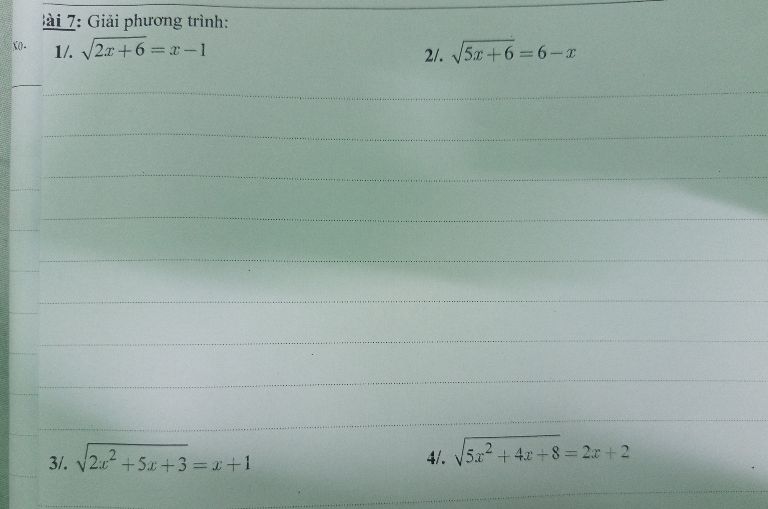 Bài 7: Giải phương trình:
1/. √(2x+6) = x−1
2/. √(5x+6) = 6−x
3/. √(2x²+5x+3) = x+1
4/. √(5x²+4x+8) = 2x+2